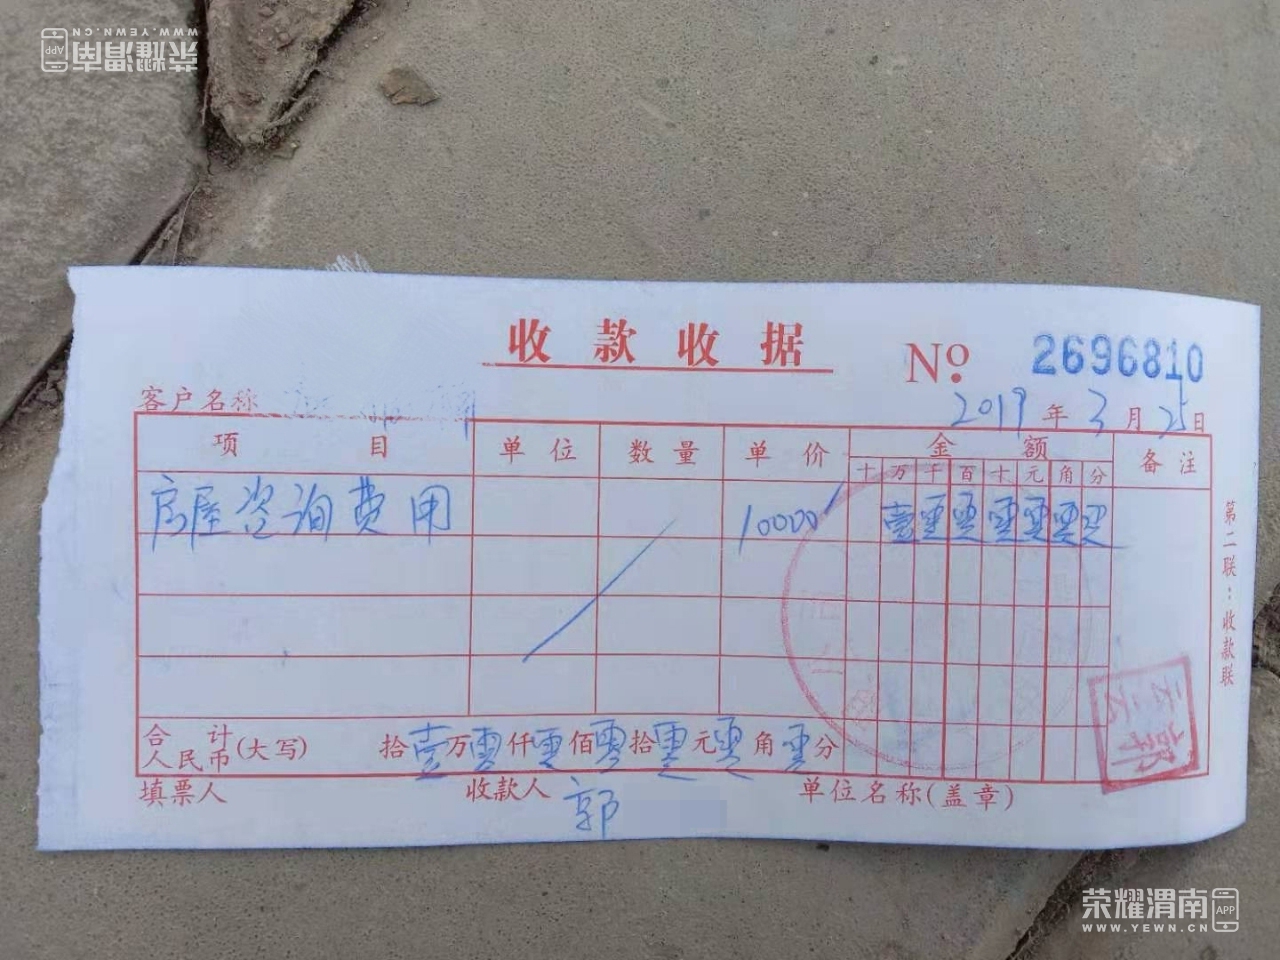 荣耀渭南 APP
WWW.YEWN.CN
收款收据 Nº. 2696810
客户名称
2019年3月25日
项目 单位 数量 单价 金额 备注
十 万 千 百 十 元 角 分
房屋咨询费用 10000 壹 零 零 零 零 零 零
合计人民币(大写) 拾壹万零仟零佰零拾零元零角零分
填票人 收款人 郭 单位名称(盖章)
第二联:收款联
荣耀渭南 APP
WWW.YEWN.CN